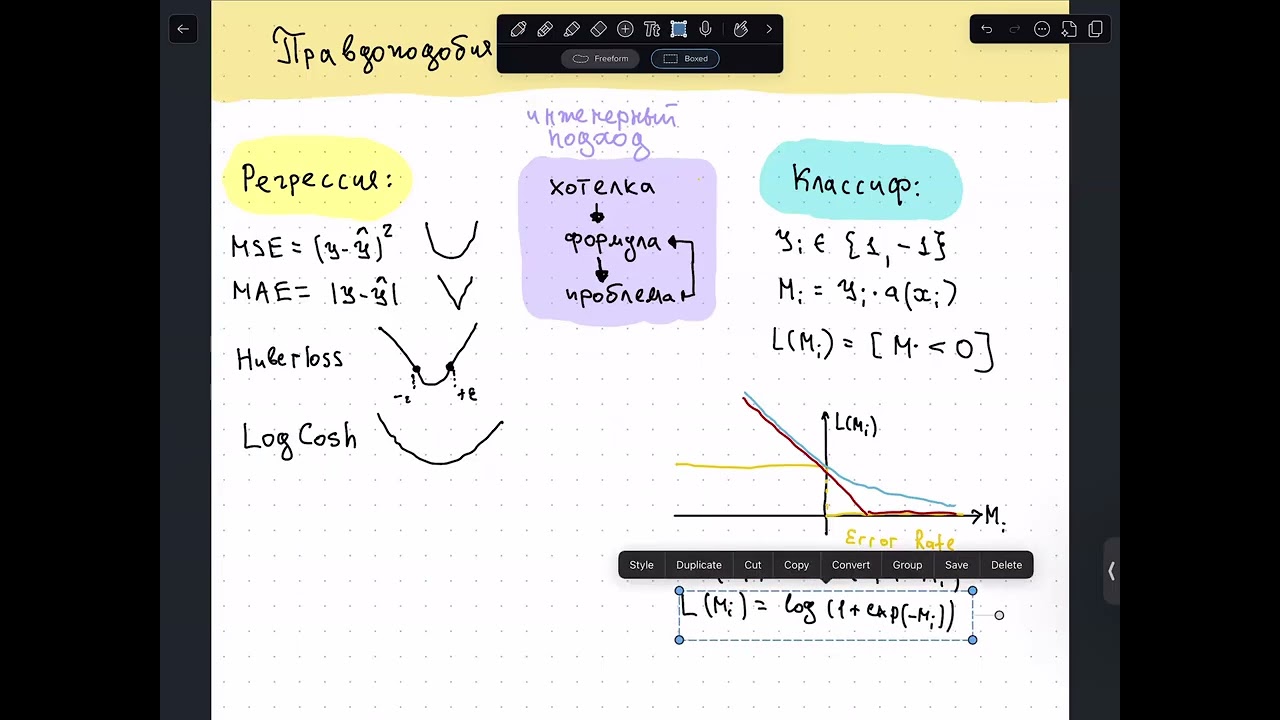 Правдоподобия
Freeform
Boxed
инженерный
подход
Регрессия:
MSE = (y-ŷ)²
MAE = |y-ŷ|
Huberloss
-ε
+ε
LogCosh
хотелка
формула
проблема
Классиф:
yᵢ ∈ {1, -1}
Mᵢ = yᵢ · a(xᵢ)
L(Mᵢ) = [Mᵢ < 0]
L(Mᵢ)
Mᵢ
Error Rate
Style Duplicate Cut Copy Convert Group Save Delete
L(Mᵢ) = log (1 + exp(-Mᵢ))